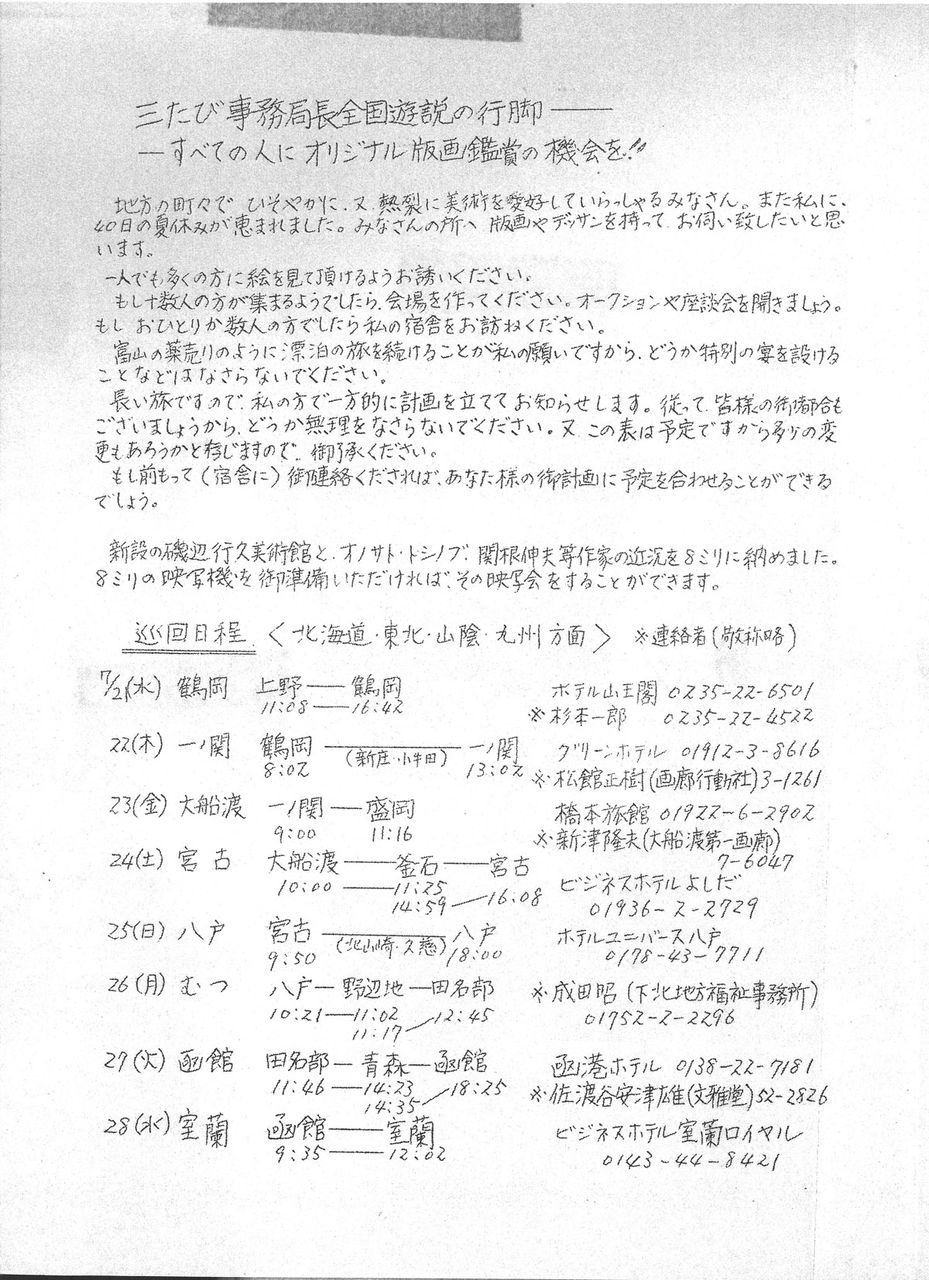 三たび事務局長全国遊説の行脚――
―すべての人にオリジナル版画鑑賞の機会を!!
地方の町々で ひそやかに、又 熱裂に美術を愛好していらっしゃるみなさん。また私に、
40日の夏休みが恵まれました。みなさんの所へ 版画やデッサンを持って お伺い致したいと思
います。
一人でも多くの方に絵を見て頂けるようお誘いください。
もし十数人の方が集まるようでしたら、会場を作ってください。オークションや座談会を開きましょう。
もし おひとりか数人の方でしたら私の宿舎をお訪ねください。
富山の薬売りのように漂泊の旅を続けることが私の願いですから、どうか特別の宴を設ける
ことなどはなさらないでください。
長い旅ですので、私の方で一方的に計画を立てて お知らせします。従って、皆様の御都合も
ございましょうから、どうか無理をなさらないでください。又、この表は予定ですから多少の変
更もあろうかと存じますので、御了承ください。
もし前もって(宿舎に)御連絡くだされば、あなた様の御計画に予定を合わせることができる
でしょう。
新設の磯辺行久美術館と、オノサト・トシノブ、関根伸夫等作家の近況を8ミリに納めました。
8ミリの映写機を御準備いただければ、その映写会をすることができます。
巡回日程 〈北海道・東北・山陰・九州方面〉 ※連絡者(敬称略)
7/21(水) 鶴岡 上野――鶴岡 ホテル山王閣 0235-22-6501
11:08――16:42 ※杉本一郎 0235-22-4522
22(木) 一ノ関 鶴岡――(新庄・小牛田)――一ノ関 グリーンホテル 01912-3-8616
8:02 13:02 ※松館正樹(画廊行動社)3-1261
23(金) 大船渡 一ノ関――盛岡 橋本旅館 01922-6-2902
9:00 11:16 ※新津隆夫(大船渡第一画廊)
7-6047
24(土) 宮古 大船渡――釜石――宮古 ビジネスホテルよしだ
10:00――11:25 01936-2-2729
14:59――16:08
25(日) 八戸 宮古――(北山崎・久慈)――八戸 ホテルユニバース八戸
9:50 18:00 0178-43-7711
26(月) むつ 八戸―野辺地―田名部 ※成田昭(下北地方福祉事務所)
10:21――11:02 01752-2-2296
11:17――12:45
27(火) 函館 田名部―青森―函館 函港ホテル 0138-22-7181
11:46――14:23 ※佐渡谷安津雄(文雅堂)52-2826
14:35――18:25
28(水) 室蘭 函館――室蘭 ビジネスホテル室蘭ロイヤル
9:35――12:02 0143-44-8421